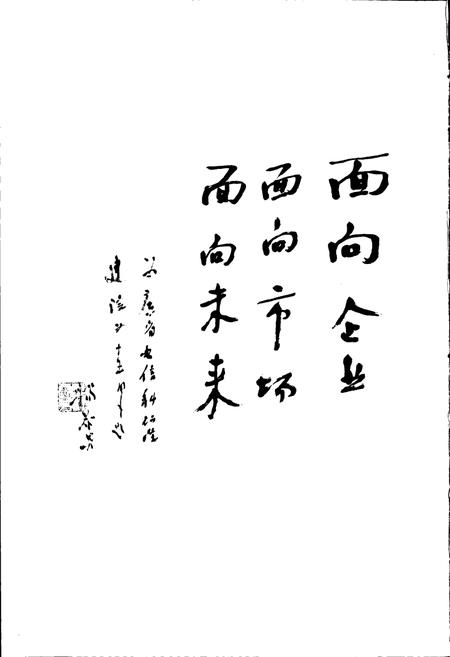 面向企业
面向市场
面向未来
为广省电信科研院
建院廿十五周年题